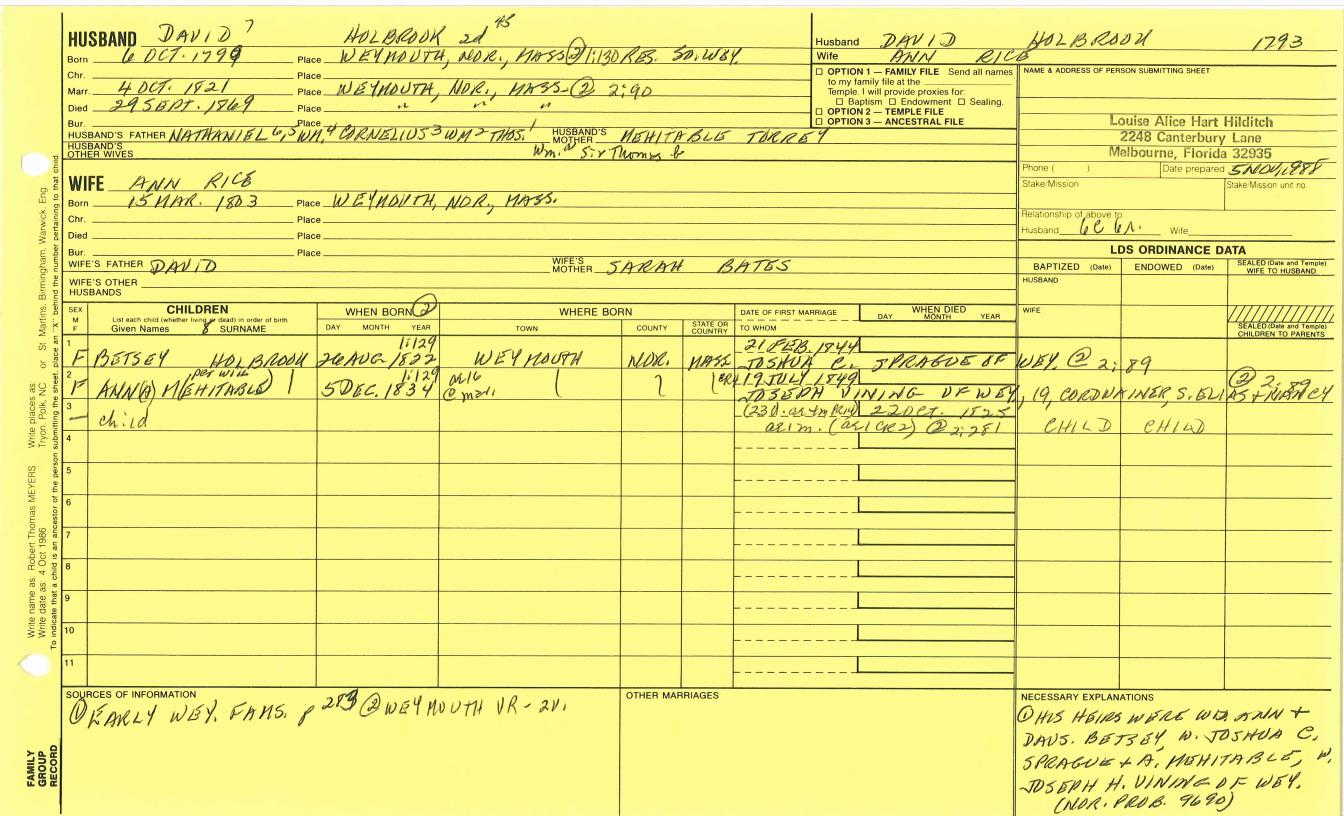 HUSBAND DAVID 7 HOLBROOK 2d 45
Born 6 OCT. 1799 Place WEYMOUTH, NOR., MASS ② 1:130 RES. SO. WEY.
Chr. Place
Marr. 4 OCT. 1821 Place WEYMOUTH, NOR., MASS ② 2:90
Died 29 SEPT. 1869 Place " " "
Bur. Place
HUSBAND'S FATHER NATHANIEL 6,5 WM 4 CORNELIUS 3 WM 2 THOS. 1 HUSBAND'S MOTHER MEHITABLE TORREY
HUSBAND'S OTHER WIVES Wm. Sir Thomas
Husband DAVID HOLBROOK 1793
Wife ANN RICE
☐ OPTION 1 — FAMILY FILE Send all names
to my family file at the
Temple. I will provide proxies for:
☐ Baptism ☐ Endowment ☐ Sealing.
☐ OPTION 2 — TEMPLE FILE
☐ OPTION 3 — ANCESTRAL FILE
NAME & ADDRESS OF PERSON SUBMITTING SHEET
Louise Alice Hart Hilditch
2248 Canterbury Lane
Melbourne, Florida 32935
Phone ( ) Date prepared 5 NOV, 1988
Stake/Mission Stake/Mission unit no.
Relationship of above to
Husband 6C 6r. Wife
WIFE ANN RICE
Born 15 MAR. 1803 Place WEYMOUTH, NOR., MASS.
Chr. Place
Died Place
Bur. Place
WIFE'S FATHER DAVID WIFE'S MOTHER SARAH BATES
WIFE'S OTHER HUSBANDS
LDS ORDINANCE DATA
BAPTIZED (Date) ENDOWED (Date) SEALED (Date and Temple) WIFE TO HUSBAND
HUSBAND
WIFE
SEALED (Date and Temple) CHILDREN TO PARENTS
SEX M F CHILDREN WHEN BORN ② WHERE BORN DATE OF FIRST MARRIAGE WHEN DIED
List each child (whether living or dead) in order of birth.
Given Names 8 SURNAME DAY MONTH YEAR TOWN COUNTY STATE OR COUNTRY TO WHOM DAY MONTH YEAR
1 1:129 21 FEB. 1844
F BETSEY HOLBROOK 26 AUG. 1822 WEYMOUTH NOR. MASS JOSHUA C. SPRAGUE OF WEY. ② 2:89
2 per will 1:129 19 JULY 1849 ② 2:89
F ANN(A) MEHITABLE 5 DEC. 1834 JOSEPH VINING OF WEY, 19, CORDWAINER, S. ELIAS + NANCY
3 22 OCT. 1825
child ② 2:281 CHILD CHILD
4
5
6
7
8
9
10
11
SOURCES OF INFORMATION
① EARLY WEY. FAMS. p 283 ② WEYMOUTH VR - 2V.
OTHER MARRIAGES
NECESSARY EXPLANATIONS
① HIS HEIRS WERE WID. ANN +
DAUS. BETSEY, W. JOSHUA C.
SPRAGUE + A. MEHITABLE, W.
JOSEPH H. VINING OF WEY.
(NOR. PROB. 9690)
FAMILY
GROUP
RECORD
Write name as Robert Thomas MEYERS Write places as Tryon, Polk, NC or St Martins, Birmingham, Warwick, Eng.
Write date as 4 Oct 1986
To indicate that a child is an ancestor of the person submitting the sheet, place an "X" behind the number pertaining to that child